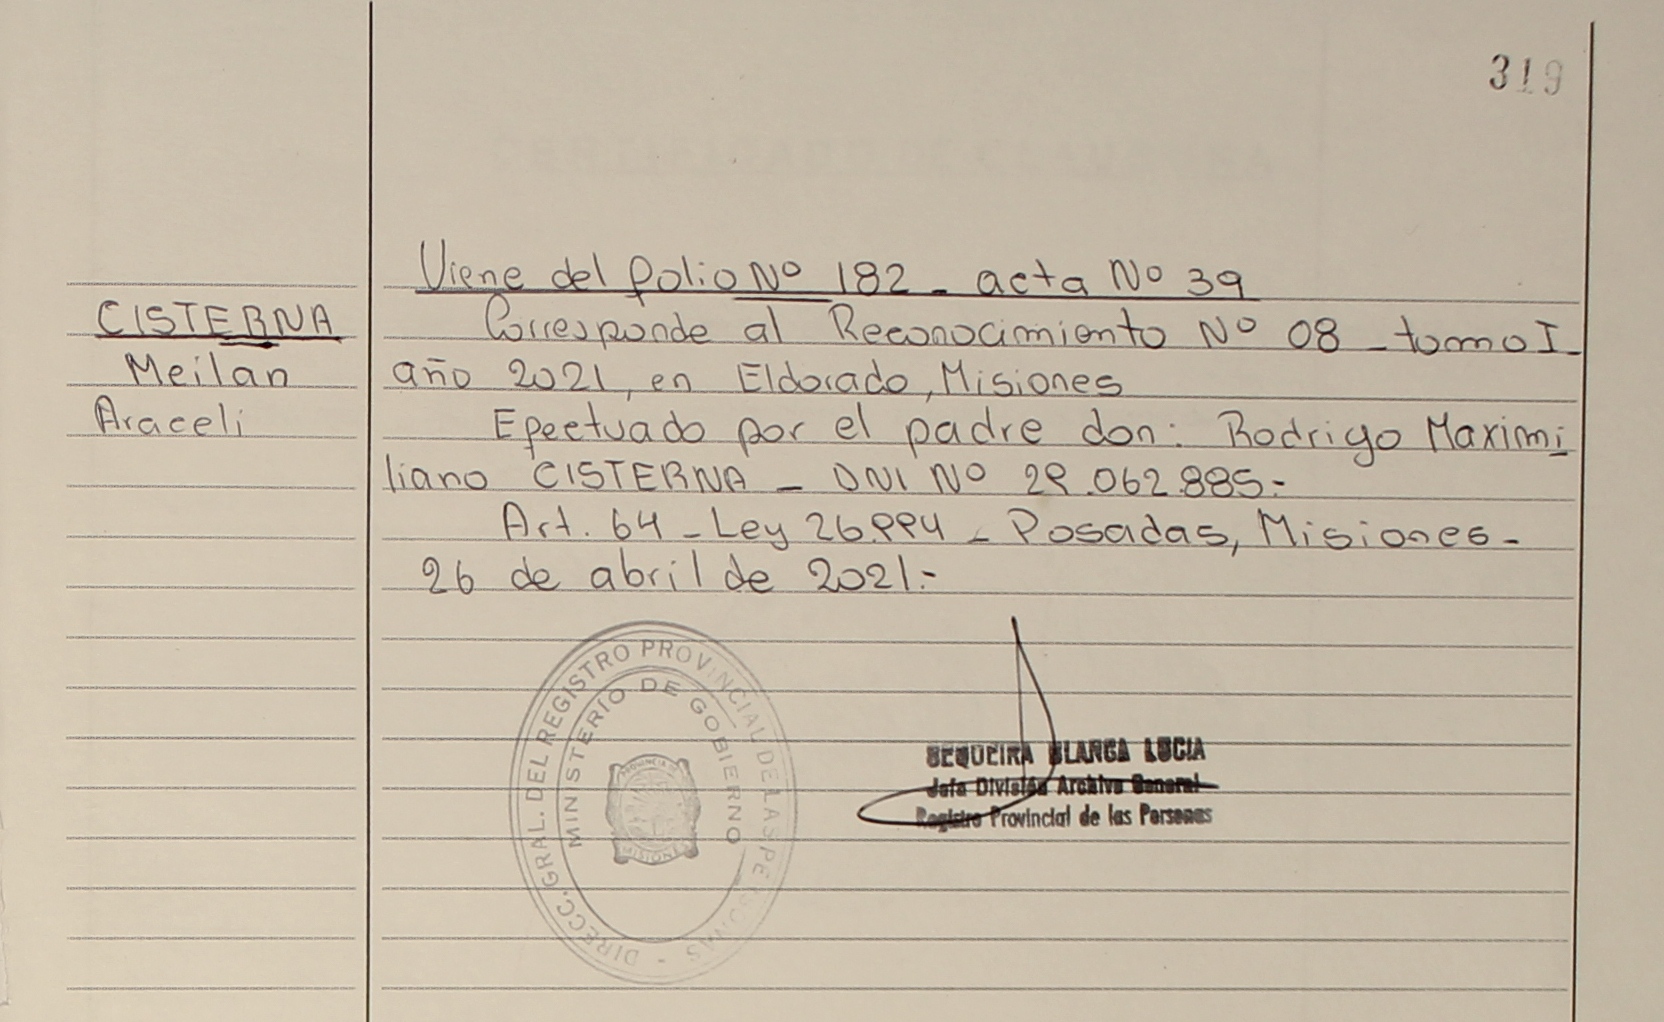 319
Viene del folio Nº 182 - acta Nº 39
CISTERNA
Meilan
Araceli
Corresponde al Reconocimiento Nº 08 - tomo I
año 2021, en Eldorado, Misiones
Efectuado por el padre don: Rodrigo Maximi
liano CISTERNA - DNI Nº 29.062.885.-
Art. 64 - Ley 26.994 - Posadas, Misiones -
26 de abril de 2021.-
DIRECC. GRAL. DEL REGISTRO PROVINCIAL DE LAS PERSONAS -
MINISTERIO DE GOBIERNO
PROVINCIA DE
MISIONES
SEQUEIRA BLANCA LUCIA
Jefa División Archivo General
Registro Provincial de las Personas